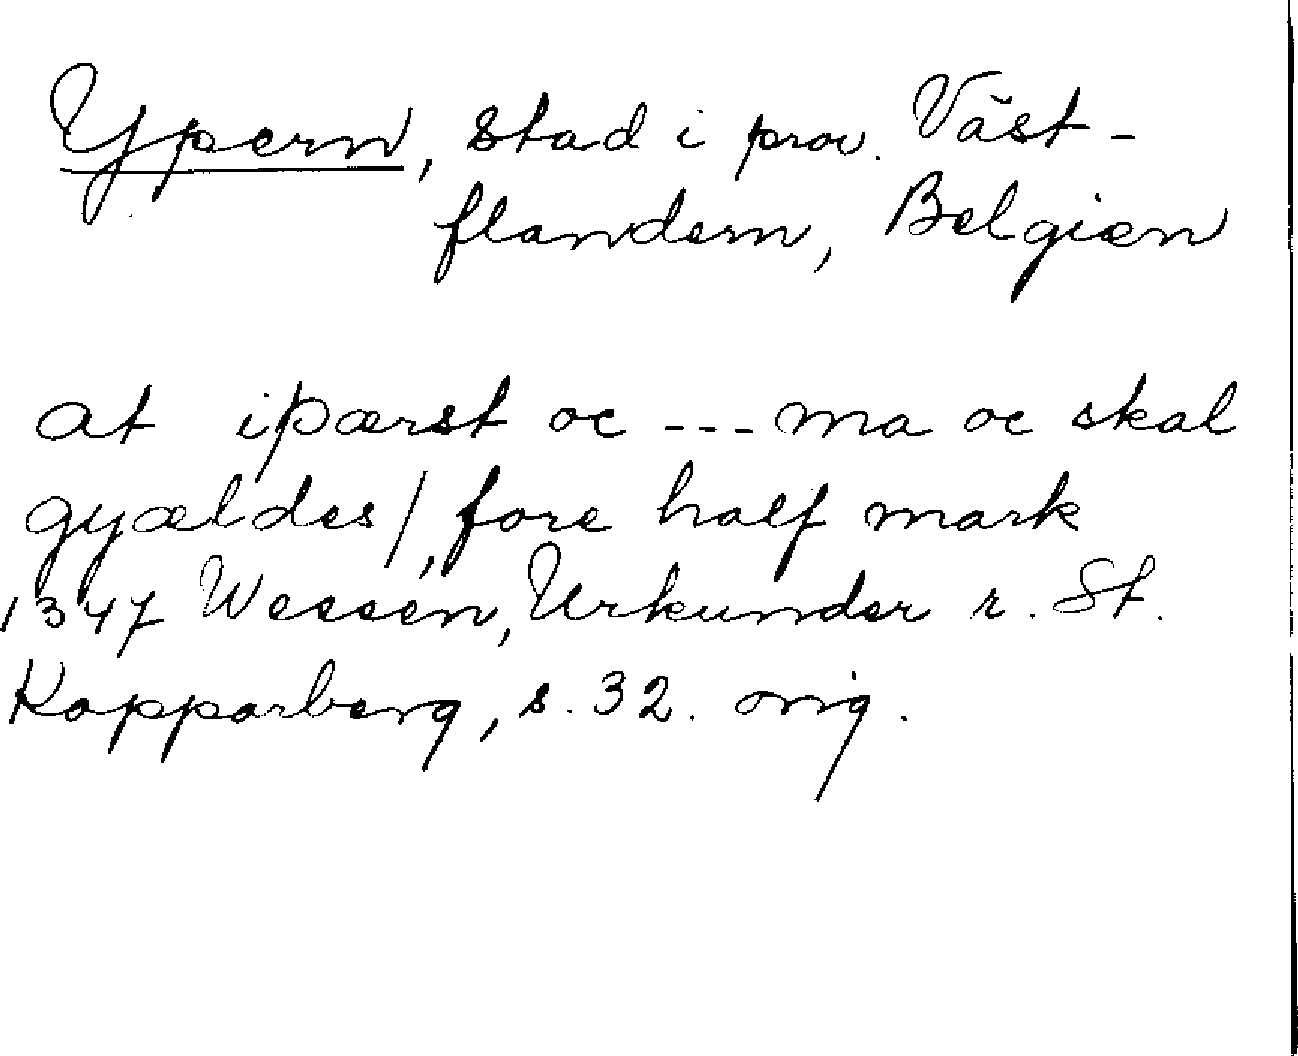 Ypern, stad i prov. Väst-
flandern, Belgien
at ipærst oc --- ma oc skal
gyældes/, fore half mark
1347 Wessén, Urkunder r. St.
Kopparberg, s. 32. orig.